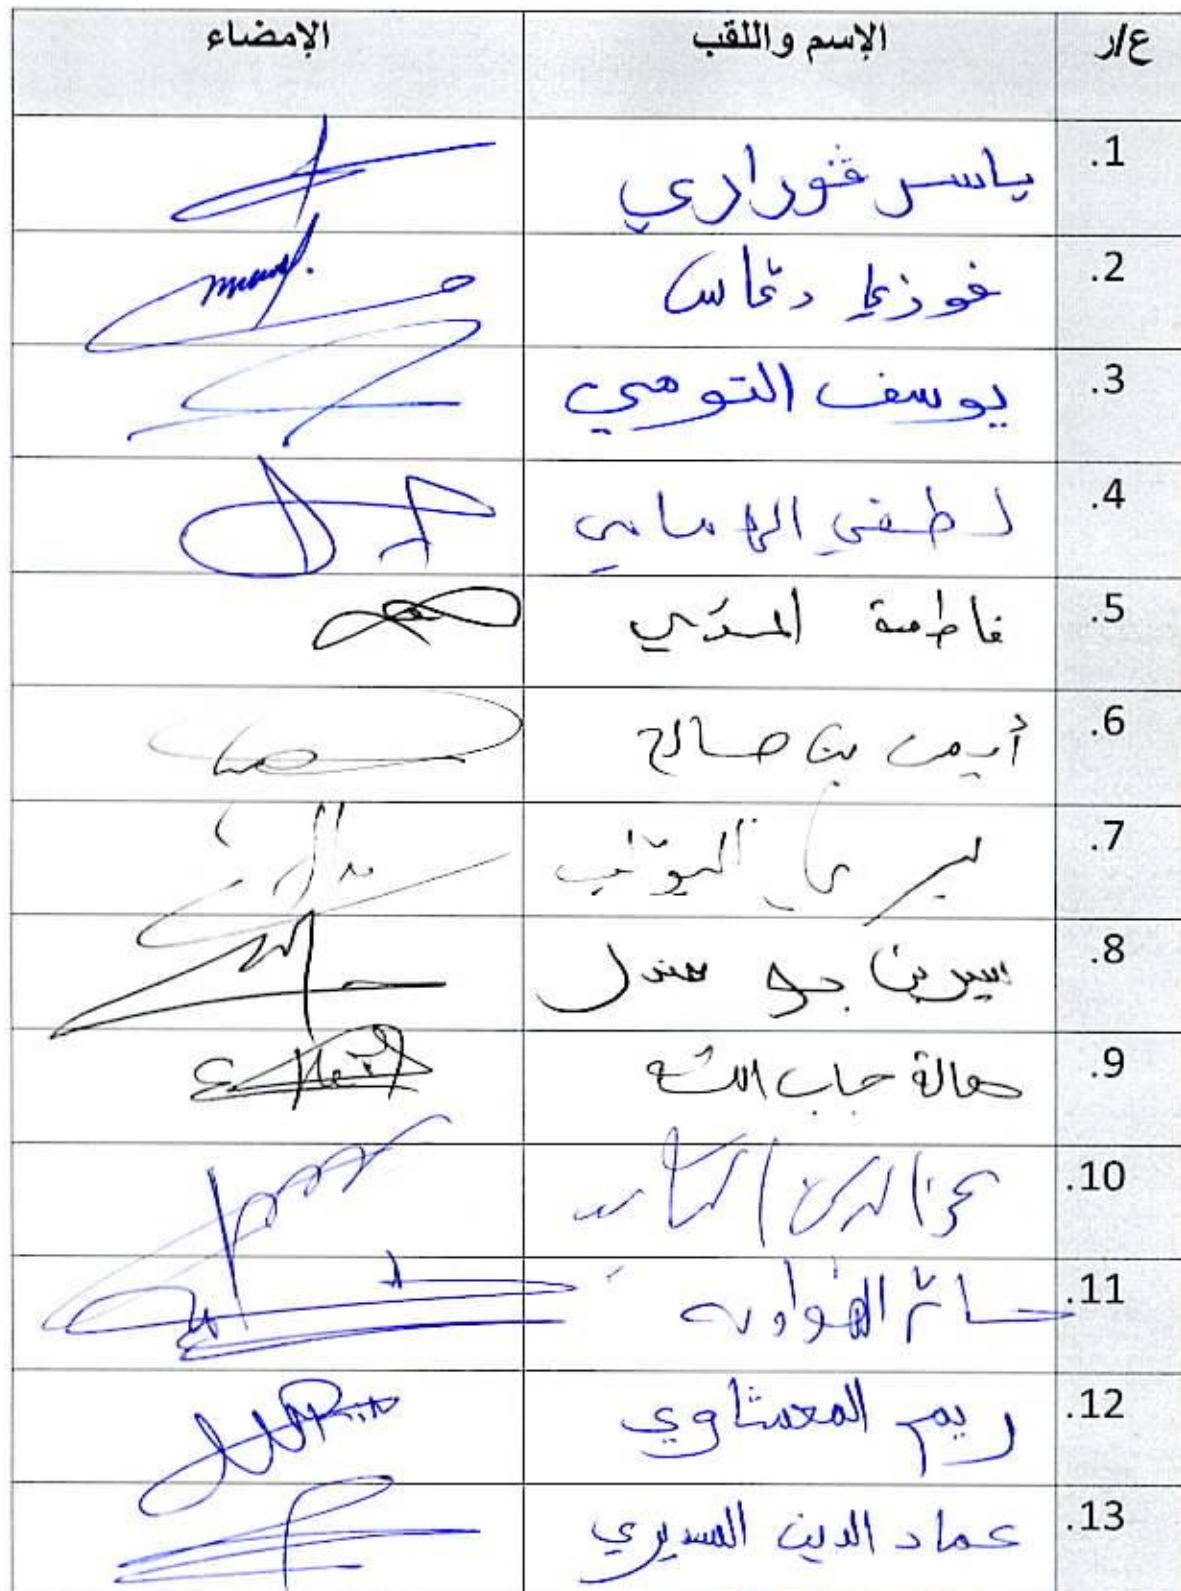 ع/ر الإسم واللقب الإمضاء
1. ياسر قوراري
2. فوزي دعاس
3. يوسف التومي
4. لطفي الهمامي
5. فاطمة المسدي
6. أيمن بن صالح
7. يسري البواب
8. سيرين بو صندل
9. هالة جاب الله
10. عز الدين التايب
11. الهواوه
12. ريم المعشاوي
13. عماد الدين السديري